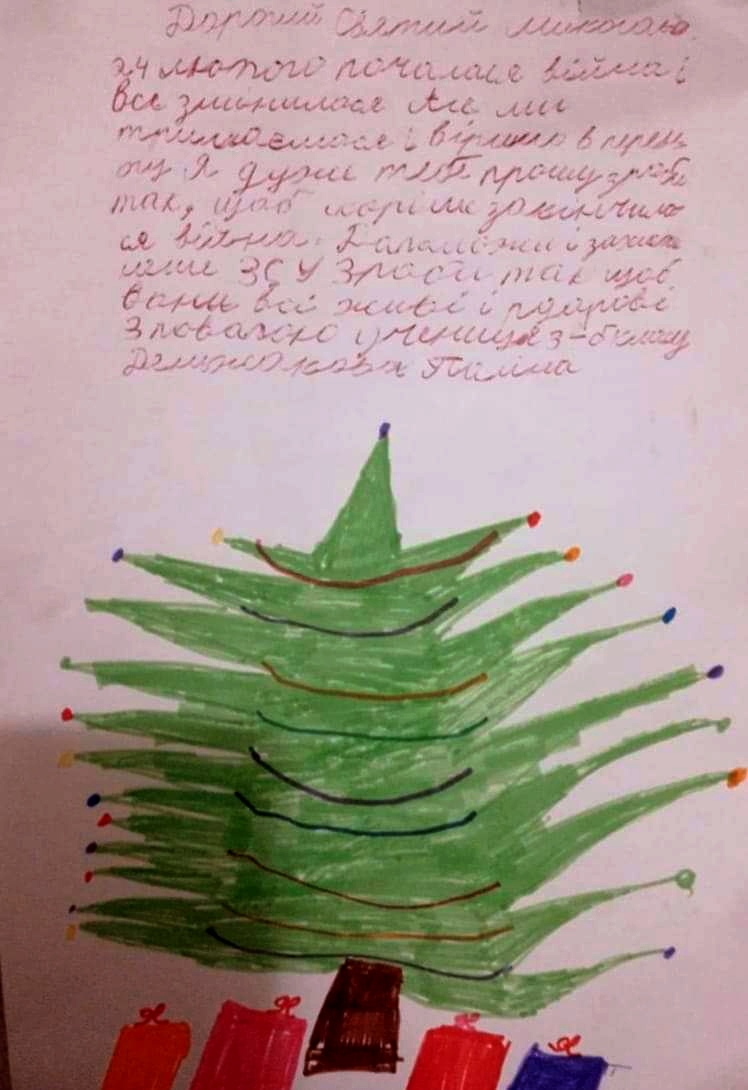 Дорогий Святий Миколаю
24 лютого почалася війна і
все змінилася Але ми
тримаємося і віримо в перем
огу Я дуже тебе прошу зроби
так, щоб скоріше закінчила
ся війна. і захист
ЗСУ Зроби так щоб
вони всі живі і
З повагою учениця 3-б класу